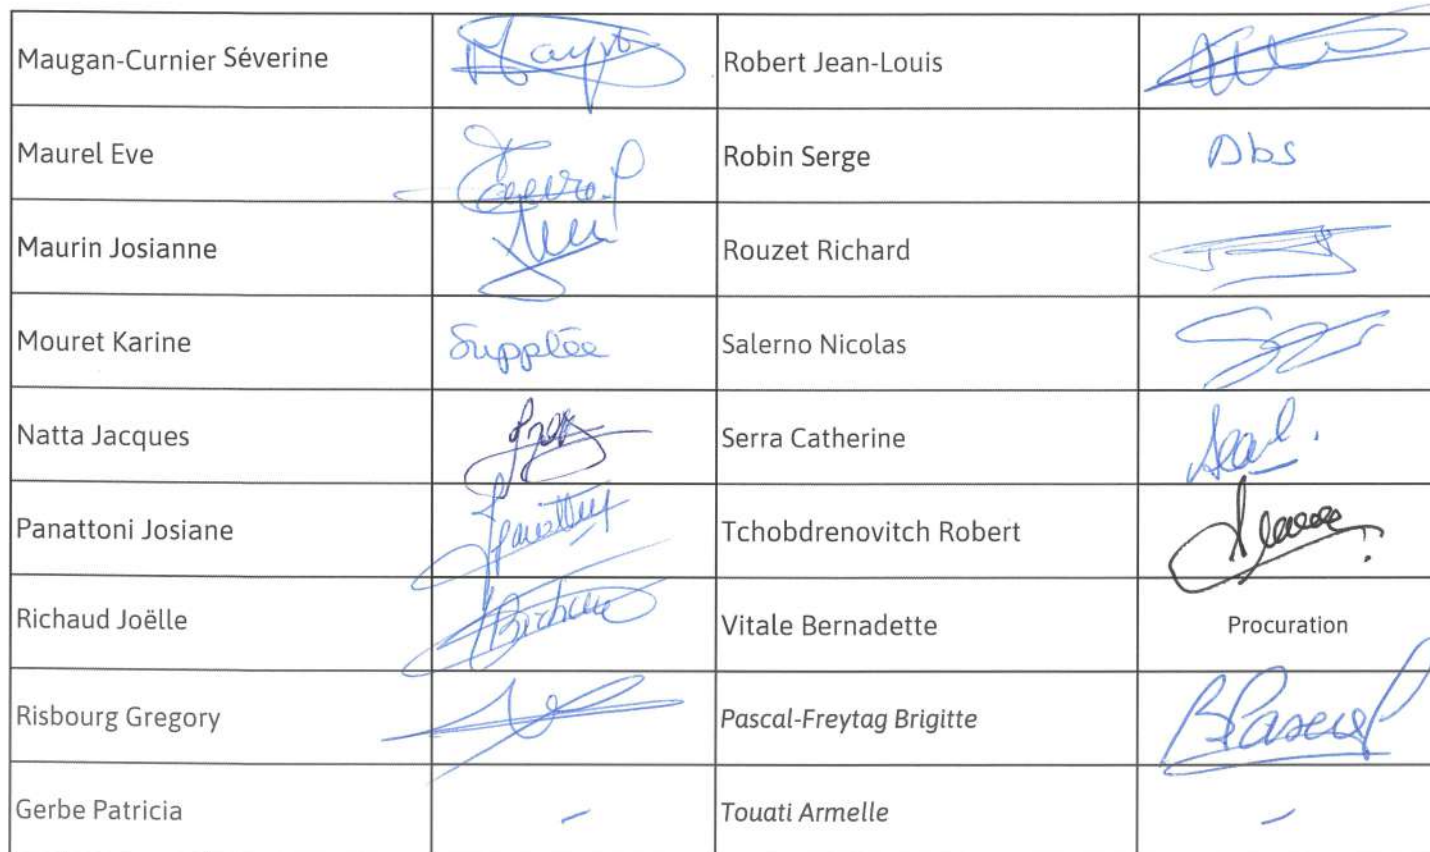 Maugan-Curnier Séverine Robert Jean-Louis
Maurel Eve Robin Serge Abs
Maurin Josianne Rouzet Richard
Mouret Karine Suppléé Salerno Nicolas
Natta Jacques Serra Catherine
Panattoni Josiane Tchobdrenovitch Robert
Richaud Joëlle Vitale Bernadette Procuration
Risbourg Gregory Pascal-Freytag Brigitte BPascal
Gerbe Patricia - Touati Armelle -